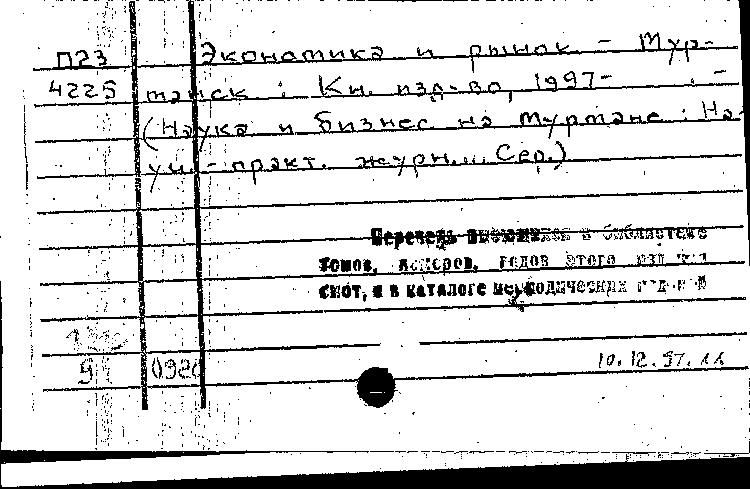 П23 Экономика и рынок. - Мур-
4225 манск : Кн. изд-во, 1997-     . -
(Наука и бизнес на Мурмане : На-
уч.-практ. журн... Сер.)
Перечень имеющихся в библиотеке
томов, номеров, годов этого изд
смот, в каталоге периодических
9 092
10.12.97.